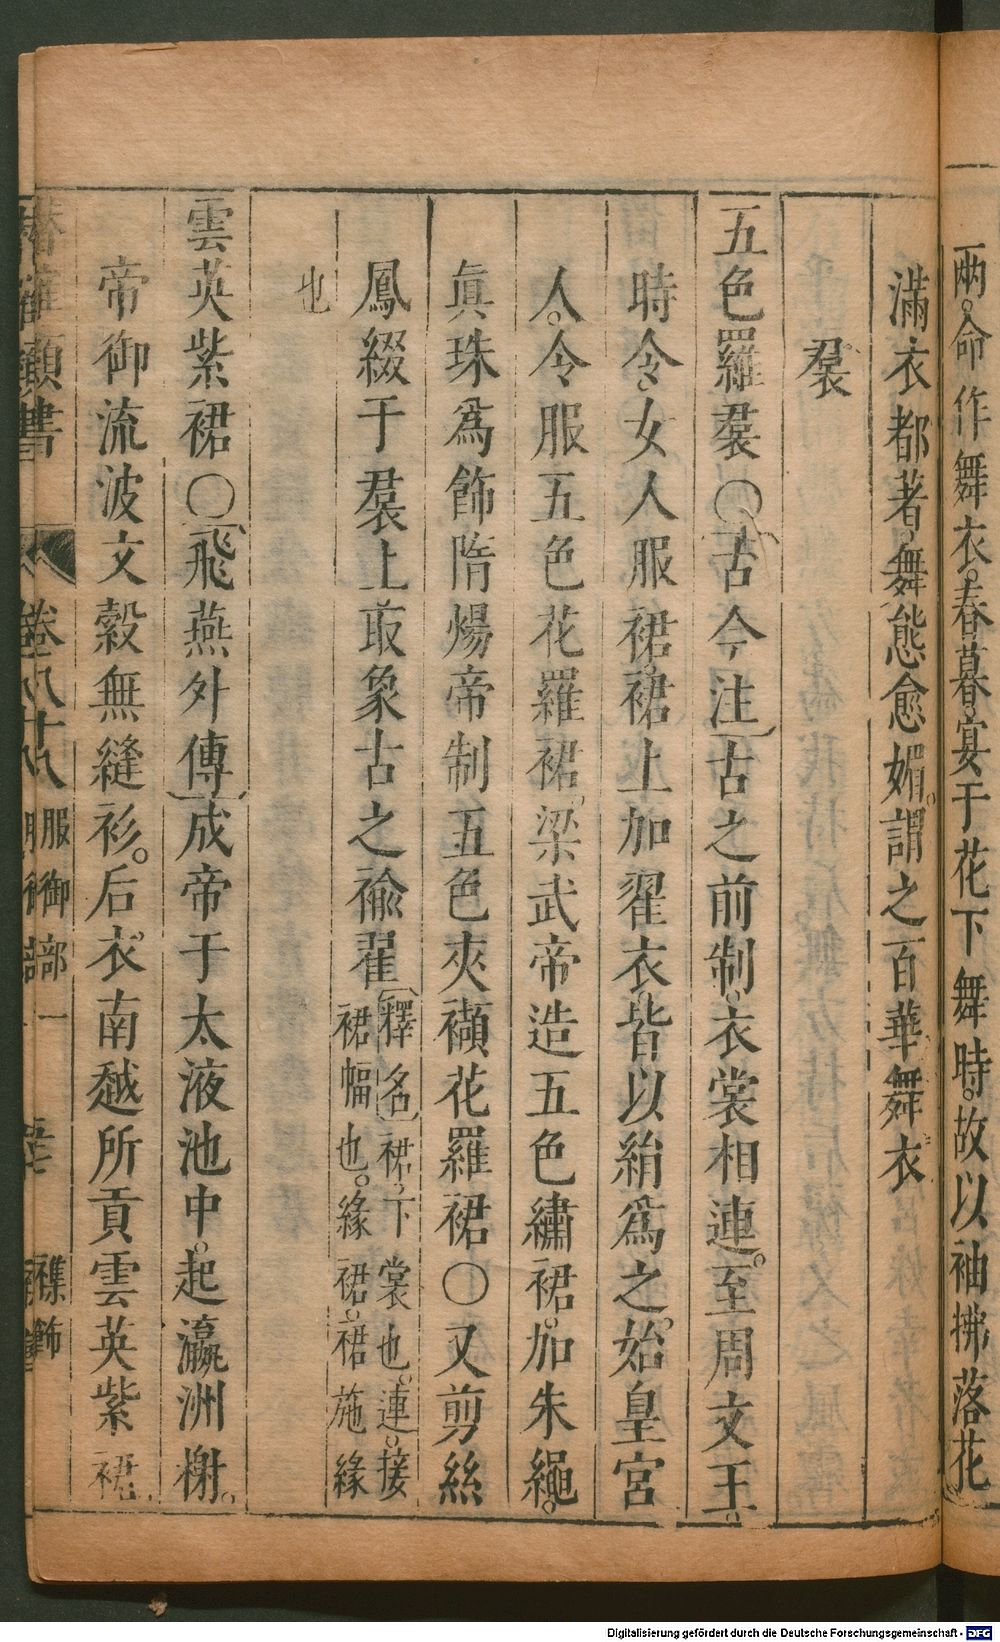 兩。命作舞衣。春暮宴于花下舞時。故以袖拂落花
滿衣都著。舞態愈媚。謂之百華舞衣
裠
五色羅裠〇古今注古之前制。衣裳相連。至周文王。
時令。女人服裙。裙上加翟衣。皆以絹爲之。始皇宮
人。令服五色花羅裙。梁武帝造五色繡裙。加朱繩。
眞珠爲飾隋煬帝制五色夾纈花羅裙〇又剪絲
鳳綴于裠上取象古之褕翟
釋名裙。下裳也。連。接
裙幅也。緣裙。裙施緣
也
雲英紫裙〇飛燕外傳成帝于太液池中。起瀛洲榭。
帝御流波文縠無縫衫。后衣南越所貢雲英紫裙
類書
卷八十八
服御部一
襍飾
Digitalisierung gefördert durch die Deutsche Forschungsgemeinschaft - DFG